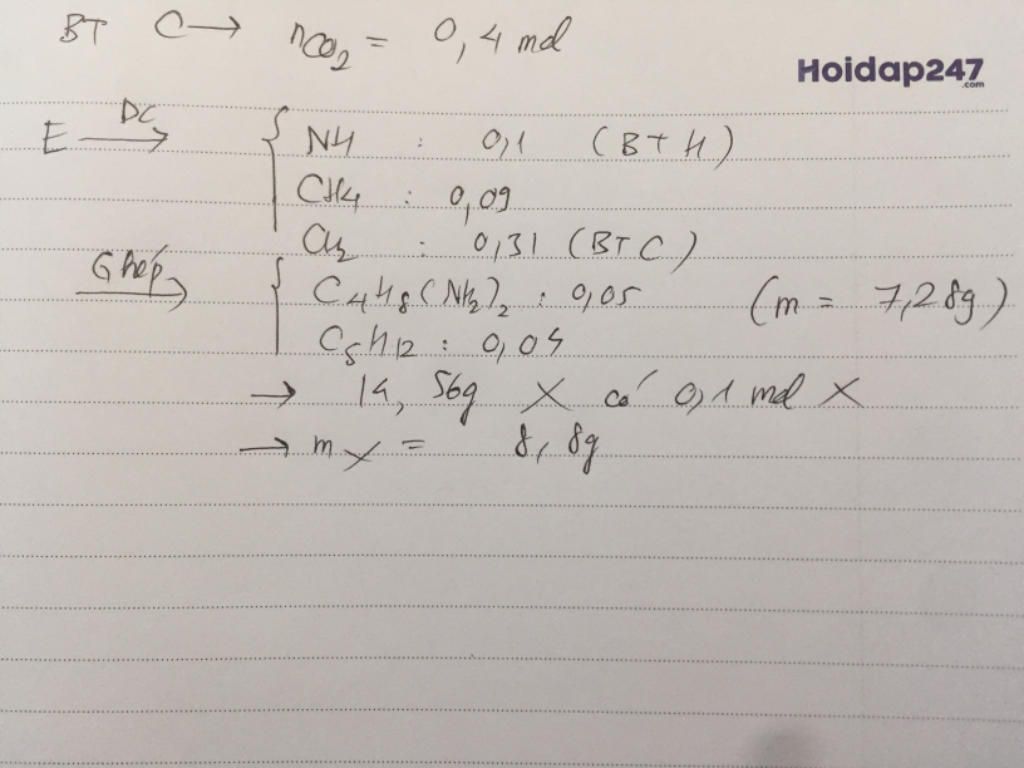 BT C → nCO2 = 0,4 mol
Hoidap247
.com
E →ĐC { NH : 0,1 (BT H)
CH4 : 0,09
CH2 : 0,31 (BT C)
Ghép → { C4H8(NH2)2 : 0,05 (m = 7,28g)
C5H12 : 0,04
→ 14,56g X có 0,1 mol X
→ mX = 8,8g